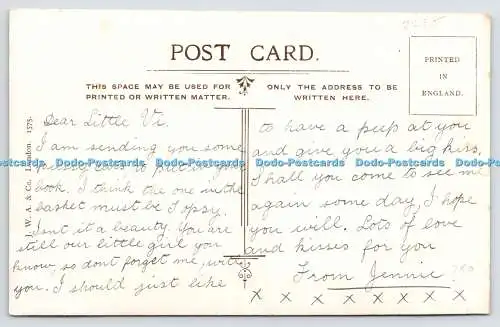 2235
POST CARD.
THIS SPACE MAY BE USED FOR
PRINTED OR WRITTEN MATTER.
ONLY THE ADDRESS TO BE
WRITTEN HERE.
PRINTED
IN
ENGLAND.
W. A. & Co. London. 1575.
Dear Little Vi.
I am sending you some
pretty cats to put in your
book. I think the one in the
basket must be Topsy.
Isnt it a beauty. You are
still our little girl you
know, so dont forget me, will
you. I should just like
to have a peep at you
and give you a big kiss.
Shall you come to see me
again some day, I hope
you will. Lots of love
and kisses for you
From Jennie.
x x x x x x x x
Dodo-Postcards Dodo-Postcards Dodo-Postcards Dodo-Postcards Dodo-Postcards